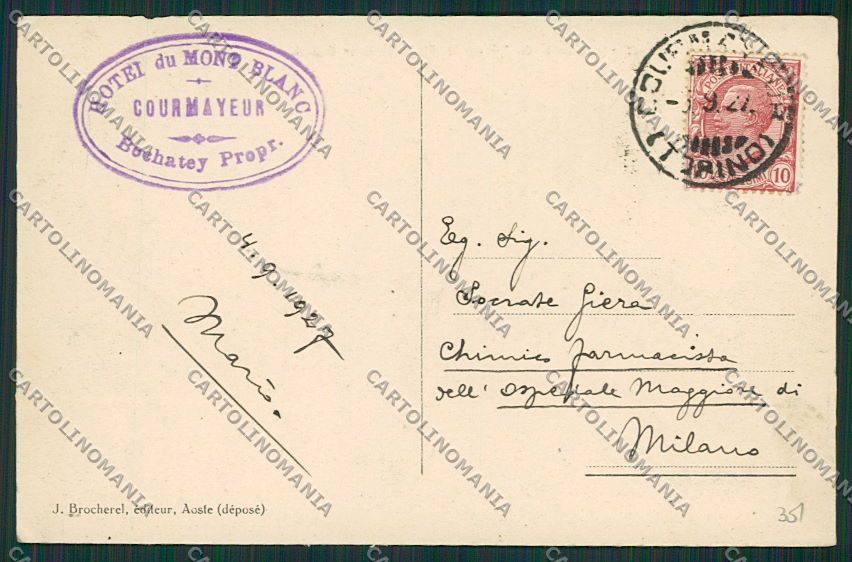 HOTEL du MONT BLANC
COURMAYEUR
Bochatey Propr.
COURMAYEUR
9.27
(TORINO)
POSTE ITALIANE
10
Eg. Sig.
Socrate Giera
Chimico farmacista
dell' Ospedale Maggiore di
Milano
4.9.1927
Mario
J. Brocherel, éditeur, Aoste (déposé)
351
CARTOLINOMANIA